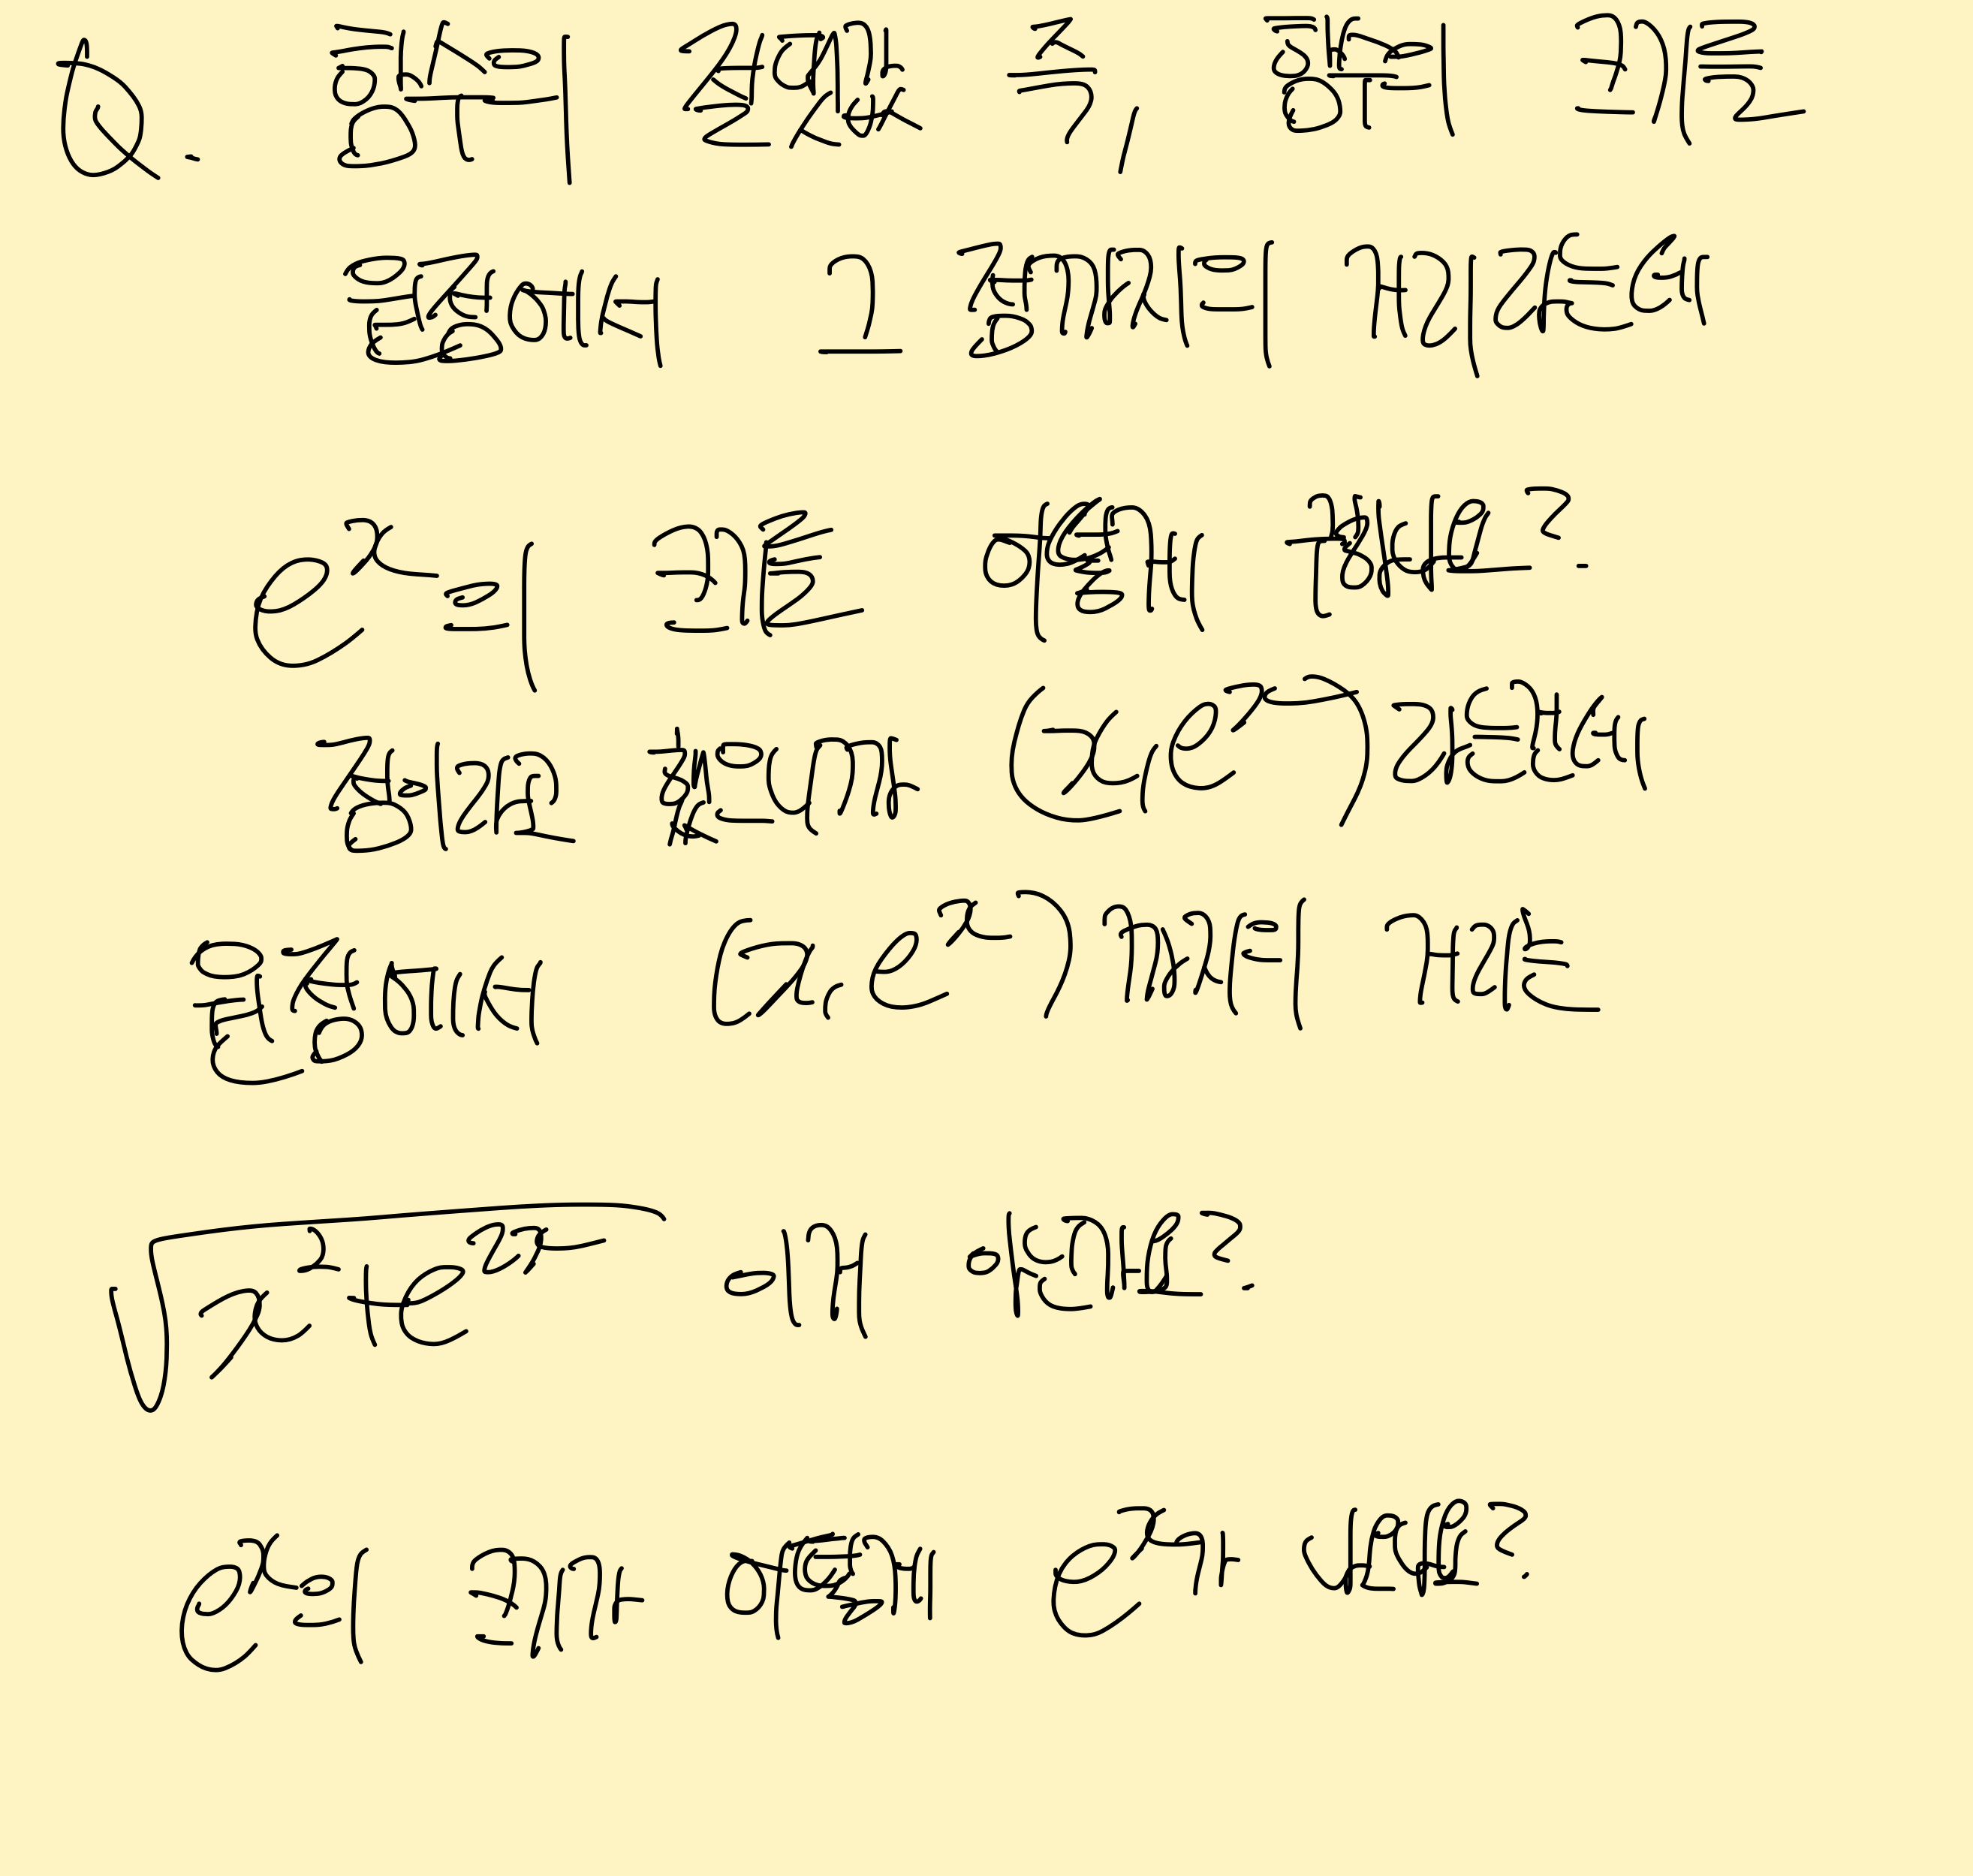 Q. 함수의 절댓값 즉, 함수의 크기를
원점에서 그 점까지의 거리로 둘 때
e^x의 크기는 어떻게 구하나요?
정의역을 찍으니까 (x, e^x)라는 거니까
원점에서 (x, e^x)까지의 거리는
√x²+e^2x 이 아닌가요?
e^x의 크기가 어떻게 e^x가 나와요?